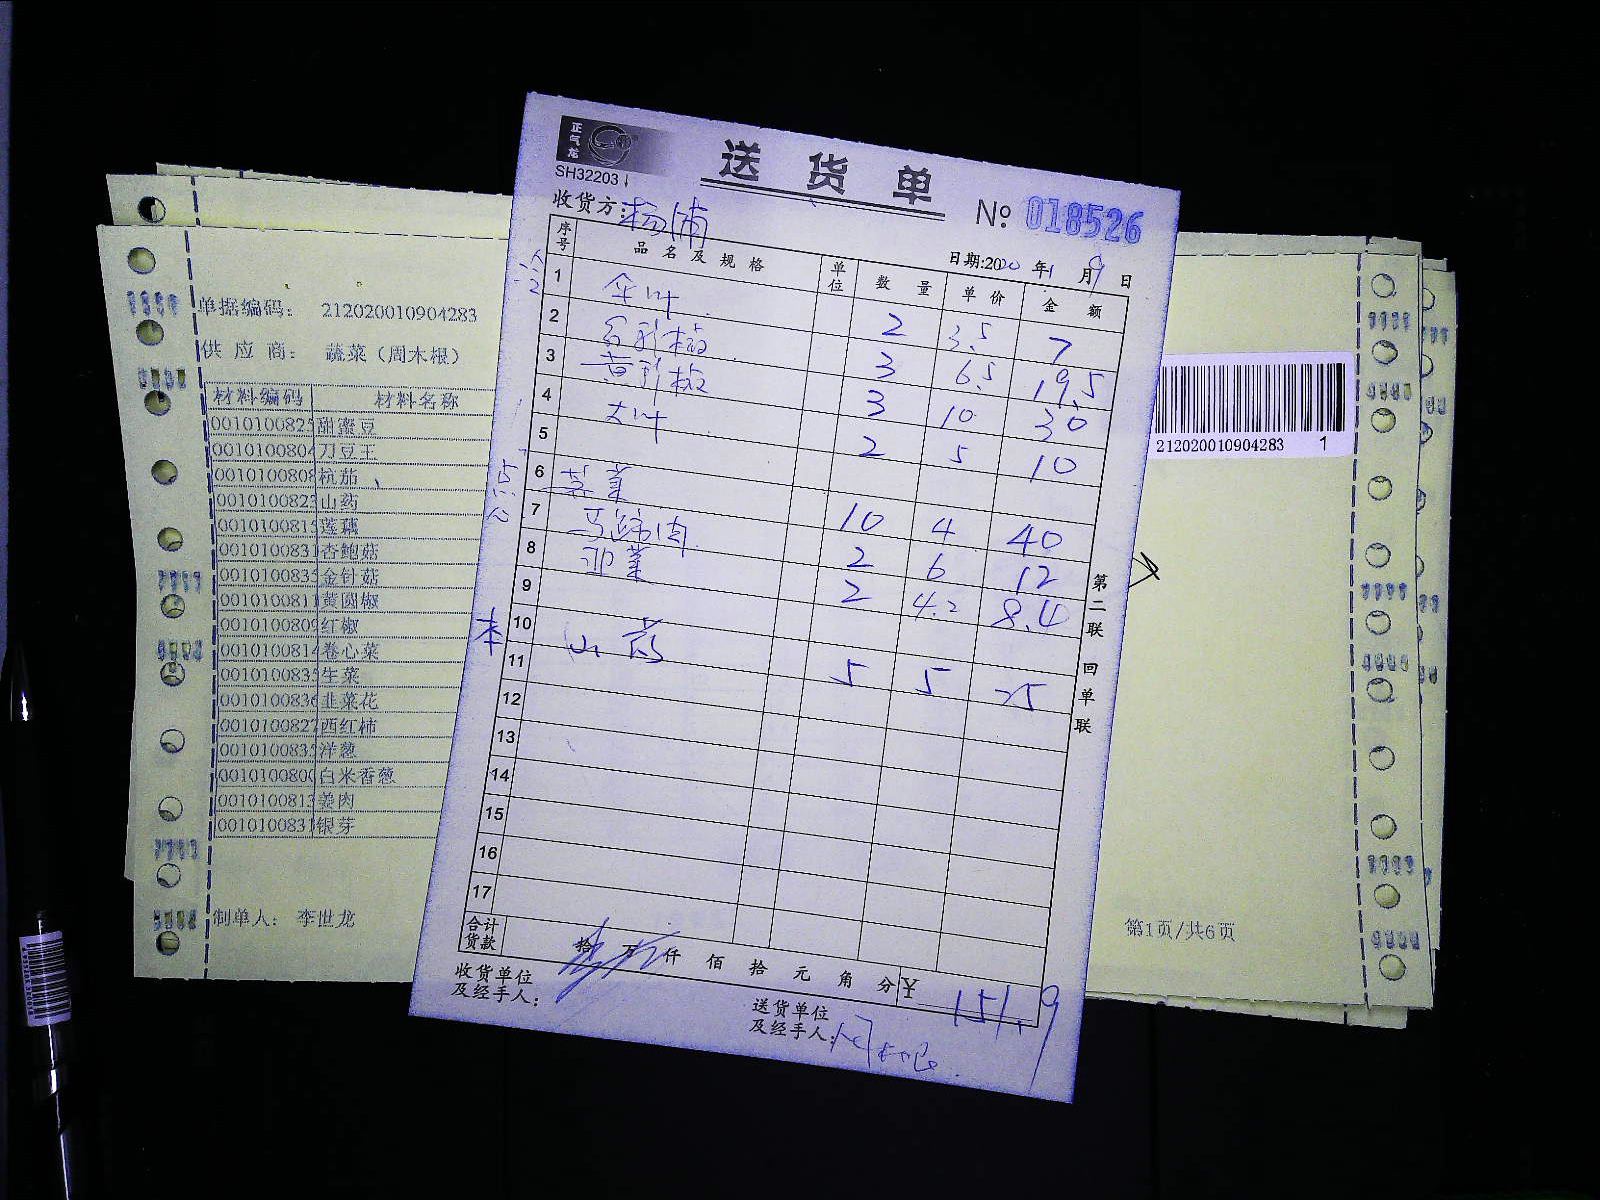 正气龙
SH32203
送货单
№ 018526
收货方:杨浦
日期:2020年1月9日
序号 品名及规格 单位 数量 单价 金额
1 2 3.5 7
2 3 6.5 19.5
3 3 10 30
4 大叶 2 5 10
5
6 10 4 40
7 马蹄肉 2 6 12
8 2 4.2 8.4
9
10 山药 5 5 25
11
12
13
14
15
16
17
合计货款 拾 万 仟 佰 拾 元 角 分 ¥ 151.9
收货单位及经手人:
送货单位及经手人:周木根
第二联 回单联
单据编码: 212020010904283
供应商: 蔬菜(周木根)
材料编码 材料名称
0010100825 甜蜜豆
0010100804 刀豆王
0010100808 杭茄
0010100823 山药
0010100815 莲藕
0010100831 杏鲍菇
0010100835 金针菇
0010100811 黄圆椒
0010100809 红椒
0010100814 卷心菜
0010100835 生菜
0010100836 韭菜花
0010100827 西红柿
0010100835 洋葱
0010100800 白米香葱
0010100813 姜肉
0010100831 银芽
制单人: 李世龙
212020010904283 1
第1页/共6页